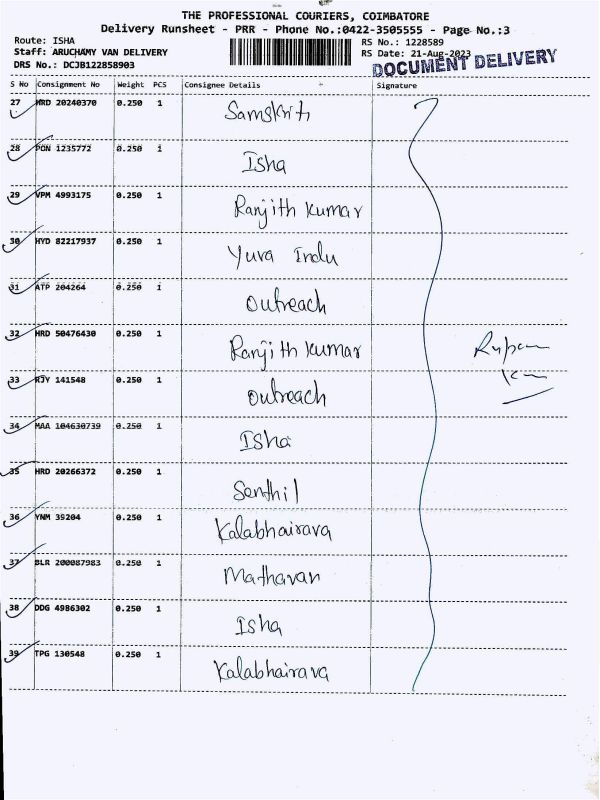 THE PROFESSIONAL COURIERS, COIMBATORE
Delivery Runsheet - PRR - Phone No.:0422-3505555 - Page No.:3
Route: ISHA RS No.: 1228589
Staff: ARUCHAMY VAN DELIVERY RS Date: 21-Aug-2023
DRS No.: DCJB122858903 DOCUMENT DELIVERY
S No Consignment No Weight PCS Consignee Details Signature
27 HRD 20240370 0.250 1 Samskriti
28 PON 1235772 0.250 1 Isha
29 VPM 4993175 0.250 1 Ranjith Kumar
30 HYD 82217937 0.250 1 Yuva Indu
31 ATP 204264 0.250 1 Outreach
32 HRD 50476430 0.250 1 Ranjith Kumar
33 RJY 141548 0.250 1 Outreach
34 MAA 104630739 0.250 1 Isha
35 HRD 20266372 0.250 1 Senthil
36 YNM 39204 0.250 1 Kalabhairava
37 BLR 200087983 0.250 1 Mathavan
38 DDG 4986302 0.250 1 Isha
39 TPG 130548 0.250 1 Kalabhairava